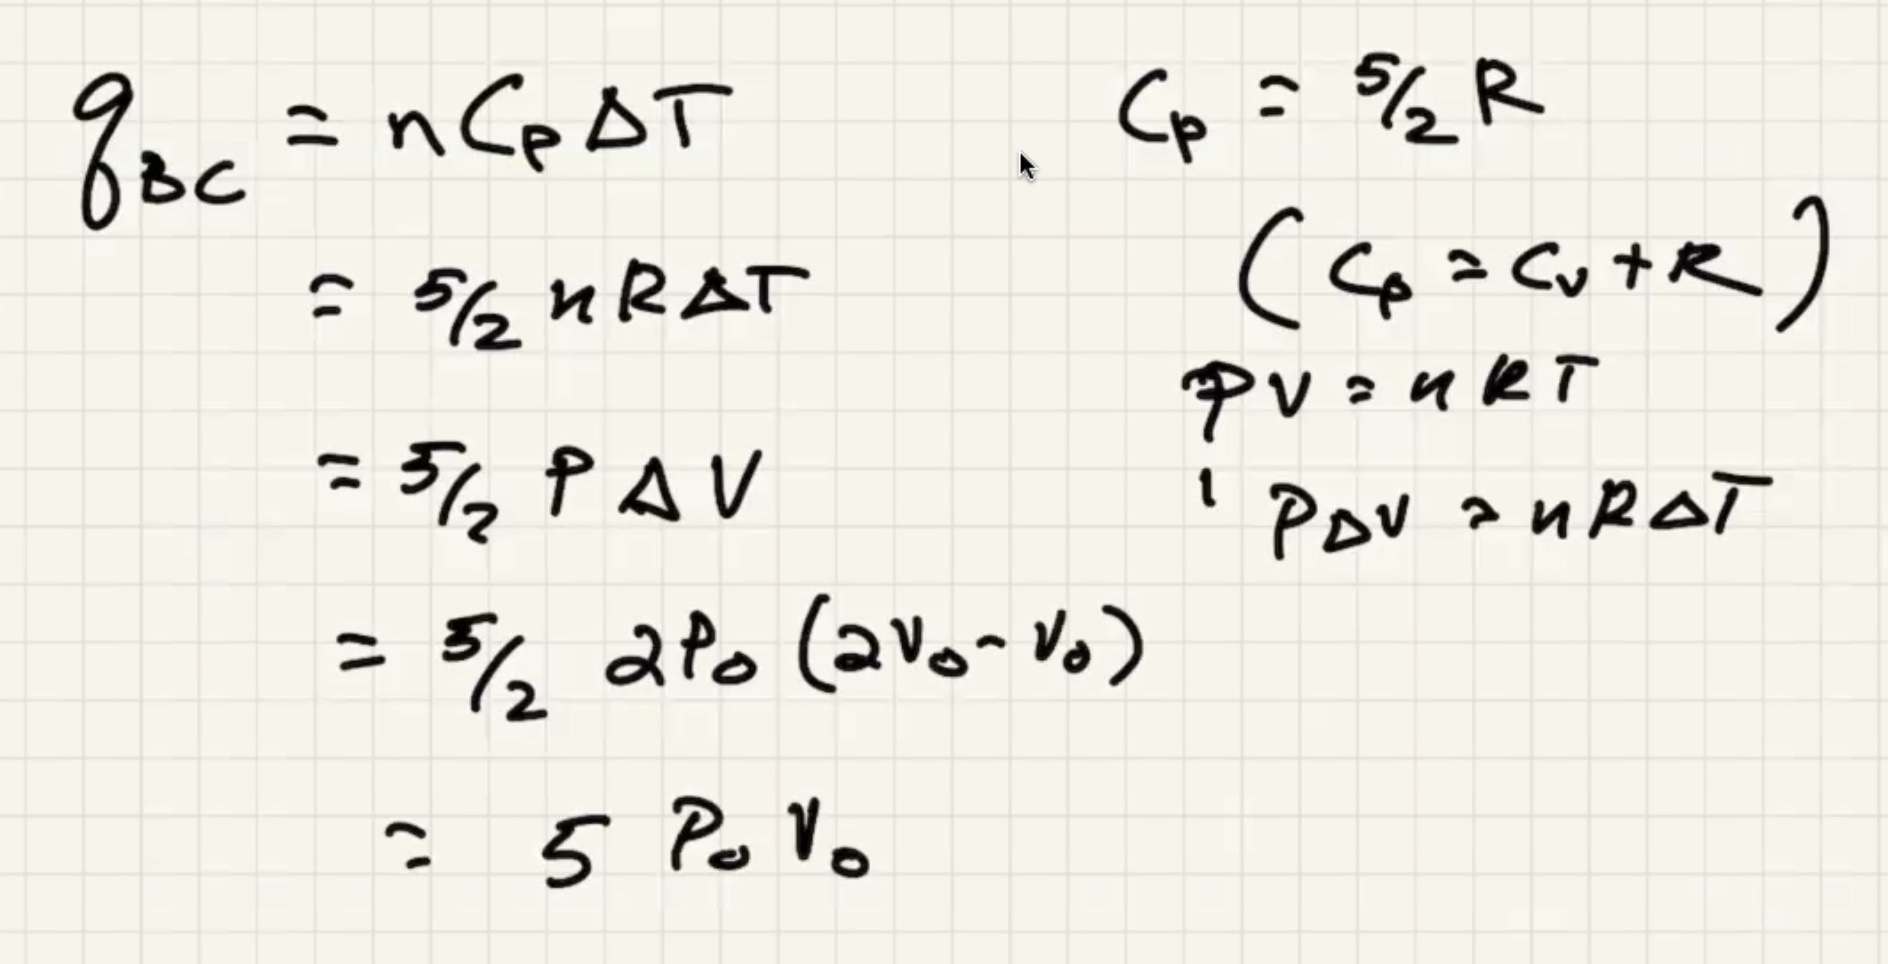 q_BC = nC_pΔT
= 5/2 nRΔT
= 5/2 PΔV
= 5/2 2P₀(2V₀ - V₀)
= 5 P₀V₀
C_p = 5/2 R
(C_p = C_v + R)
PV = nRT
PΔV = nRΔT